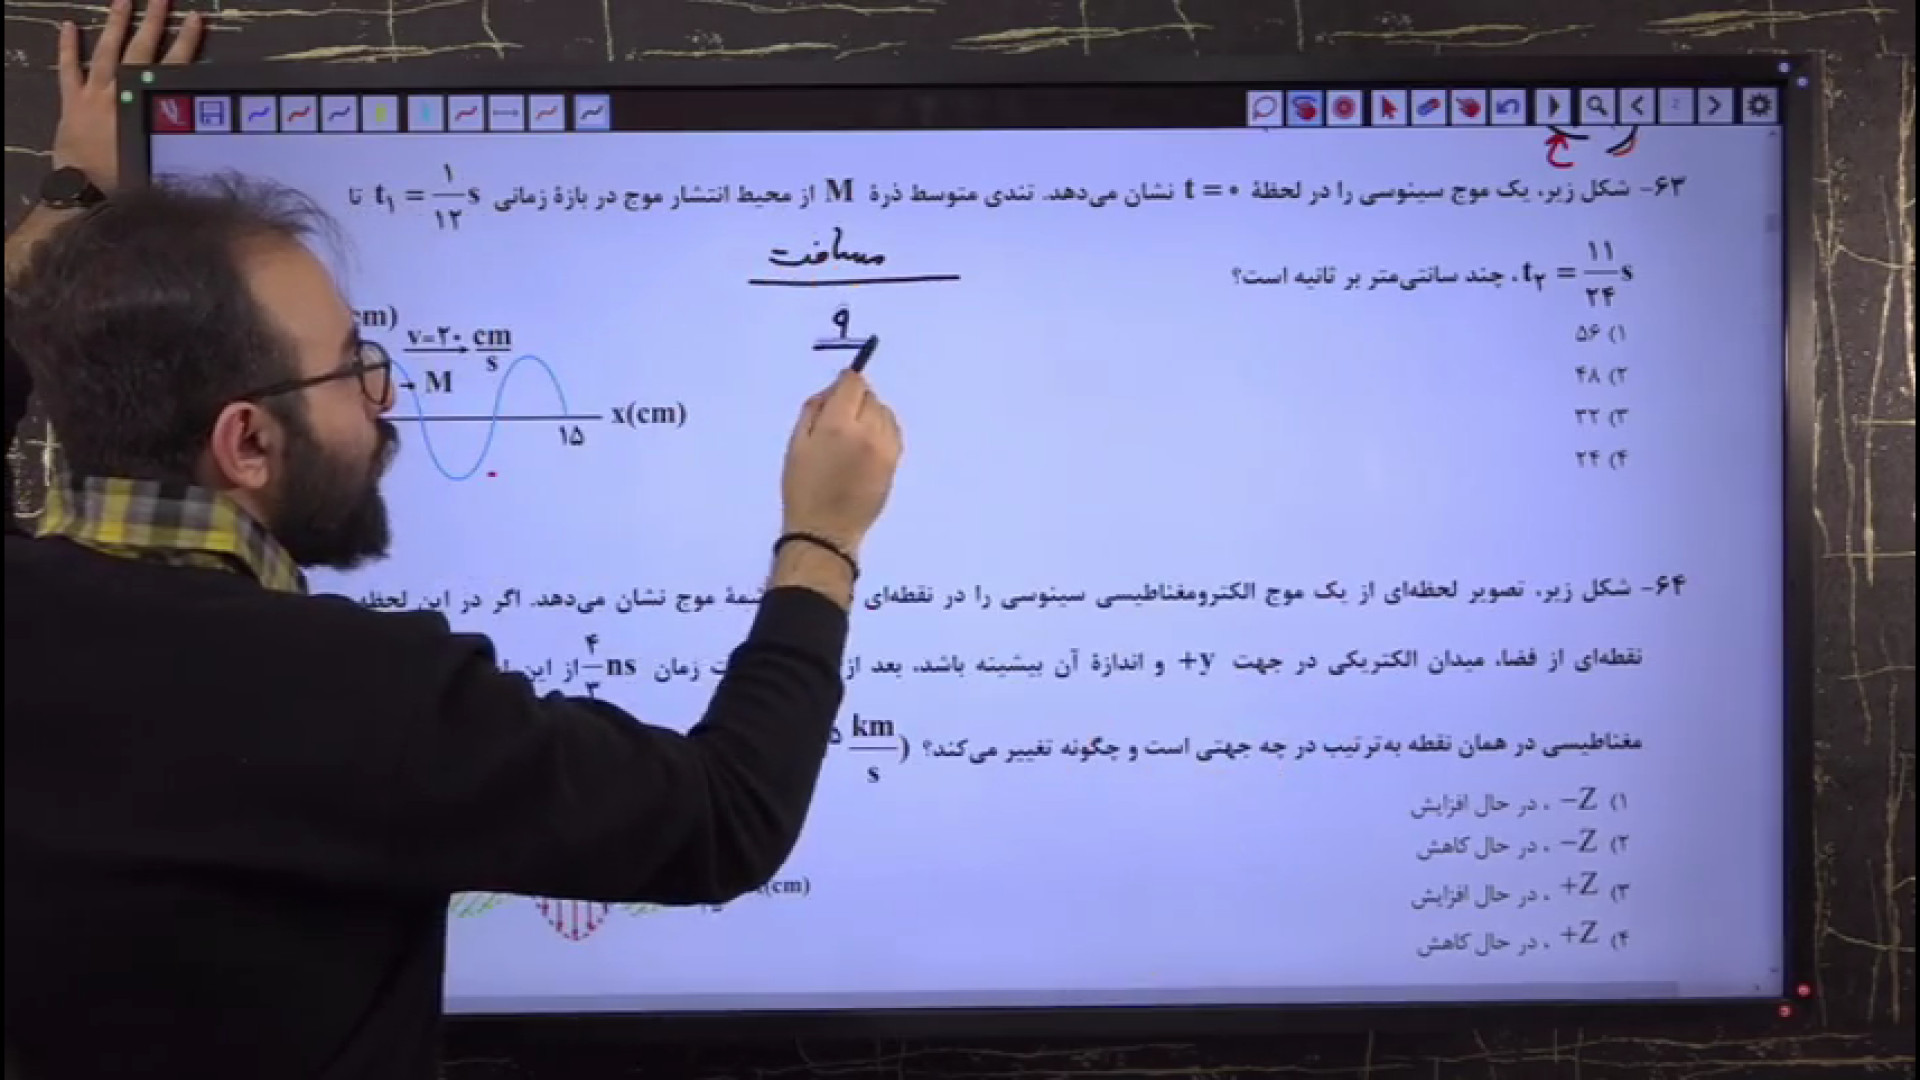 ۶۳- شکل زیر، یک موج سینوسی را در لحظهٔ t = ۰ نشان می‌دهد. تندی متوسط ذرهٔ M از محیط انتشار موج در بازهٔ زمانی t₁ = ۱/۱۲ s تا
t₂ = ۱۱/۲۴ s، چند سانتی‌متر بر ثانیه است؟
مسافت
۹
۱) ۵۶
۲) ۴۸
۳) ۳۲
۴) ۲۴
cm)
v=۲۰ cm/s
M
x(cm)
۱۵
۶۴- شکل زیر، تصویر لحظه‌ای از یک موج الکترومغناطیسی سینوسی را در نقطه‌ای موج نشان می‌دهد. اگر در این لحظه
نقطه‌ای از فضا، میدان الکتریکی در جهت +y و اندازهٔ آن بیشینه باشد، بعد از زمان ۴/۳ ns از این
مغناطیسی در همان نقطه به‌ترتیب در چه جهتی است و چگونه تغییر می‌کند؟ km/s)
۱) −Z ، در حال افزایش
۲) −Z ، در حال کاهش
۳) +Z ، در حال افزایش
۴) +Z ، در حال کاهش
(cm)